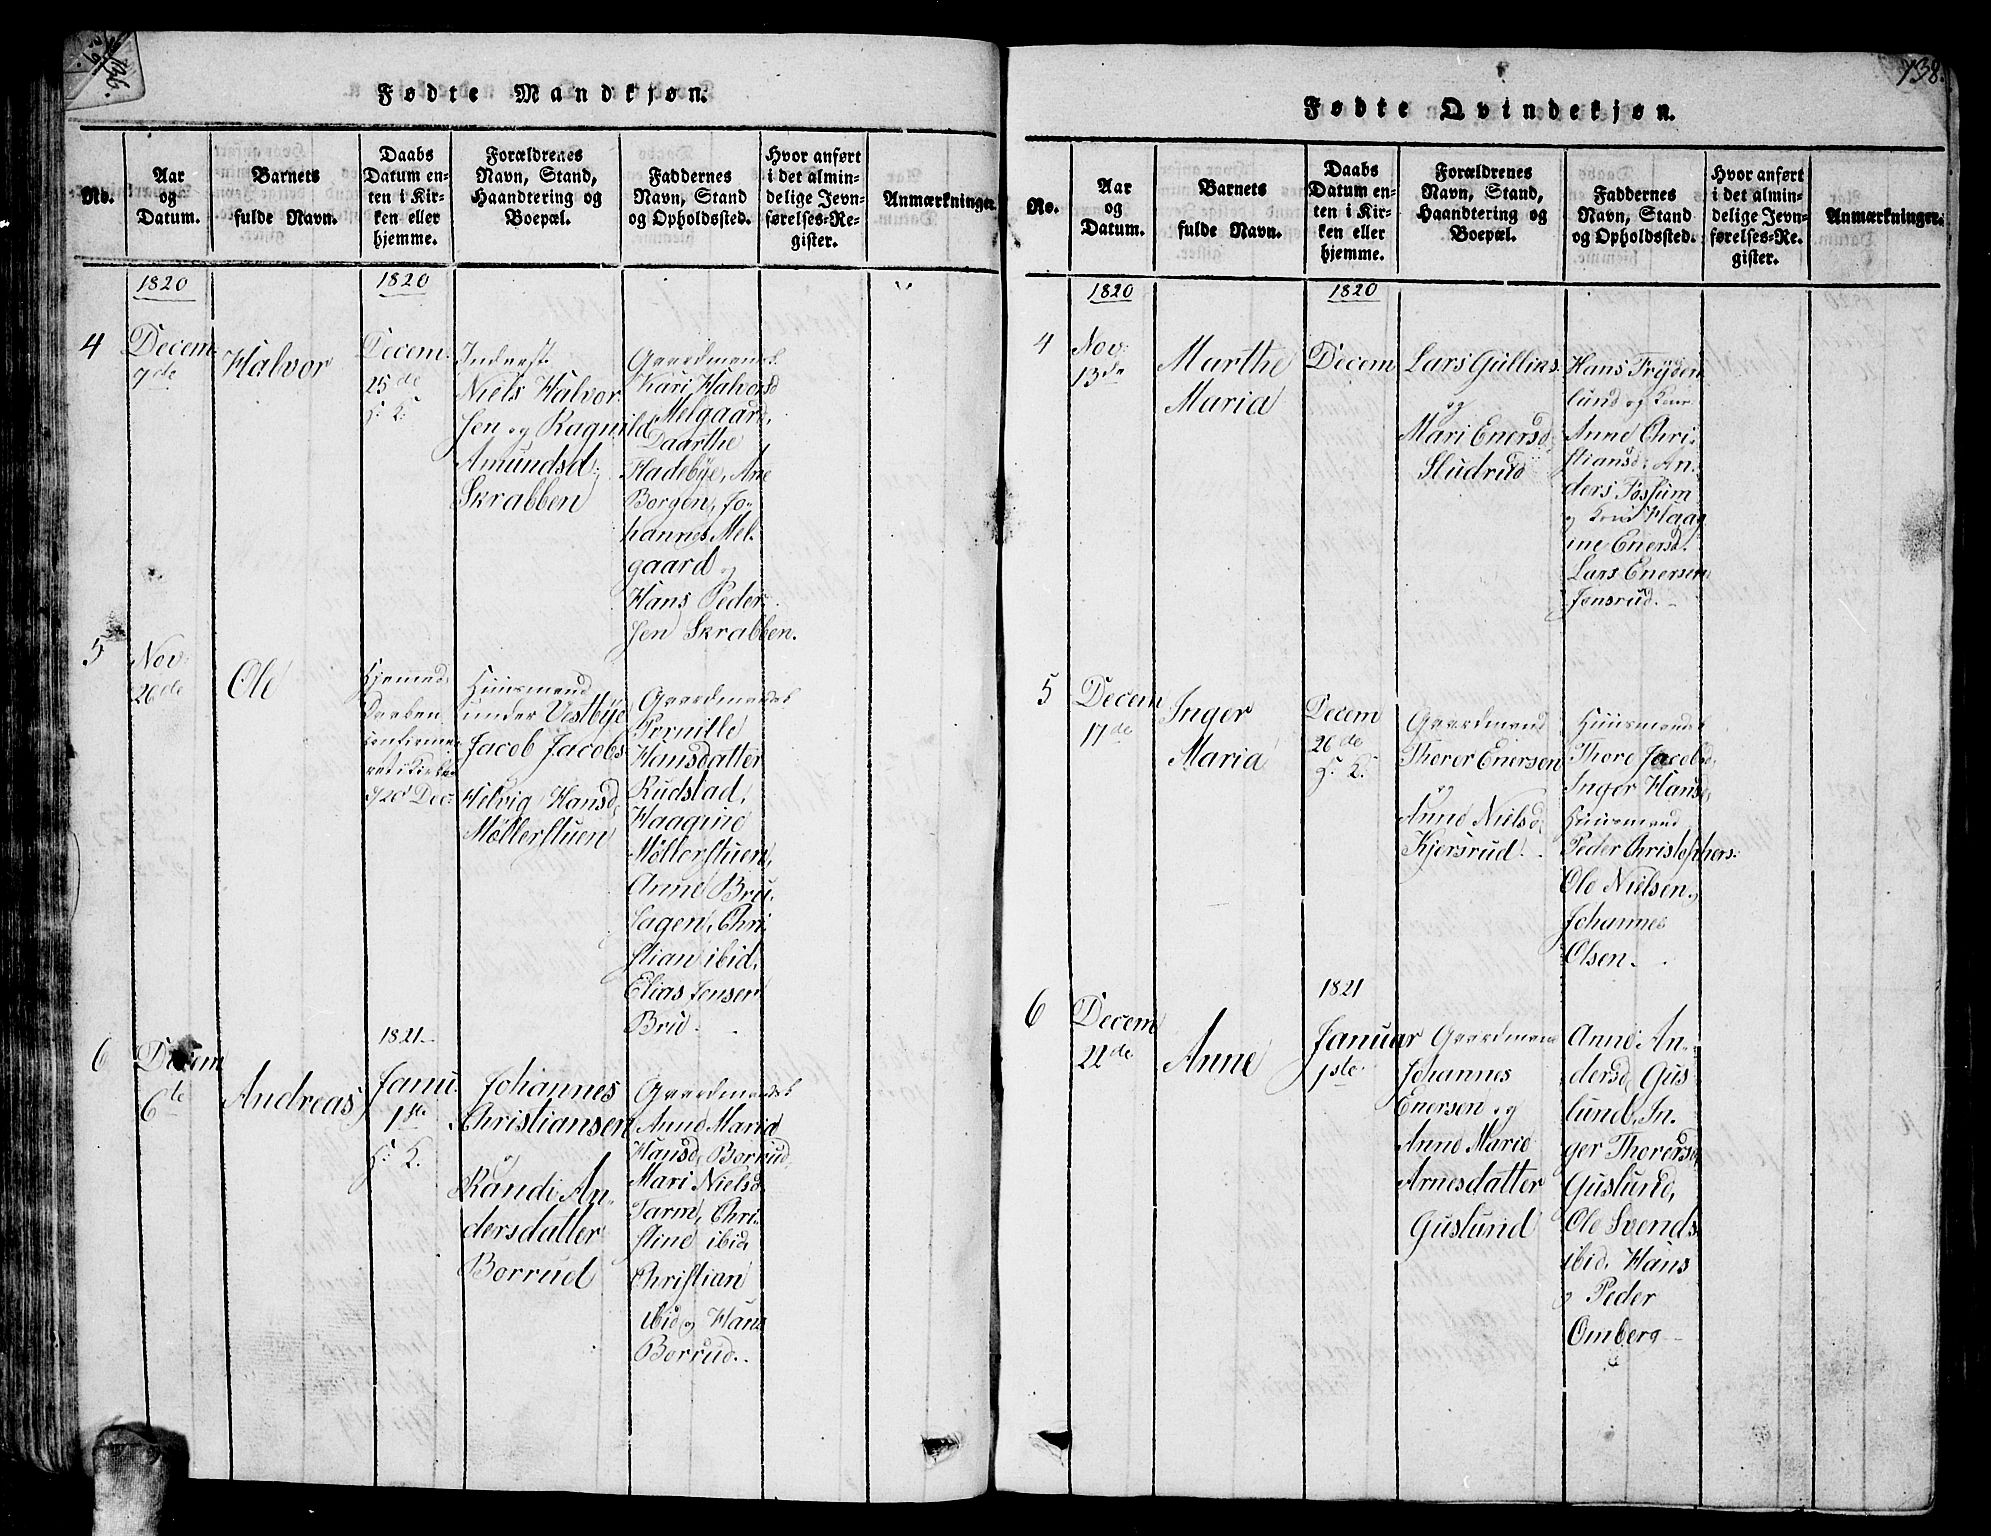 136.
Fødte Mandkjøn.
No.
Aar
og
Datum.
Barnets
fulde Navn.
Daabs
Datum en-
ten i Kir-
ken eller
hjemme.
Forældrenes
Navn, Stand,
Haandtering og
Boepæl.
Faddernes
Navn, Stand
og Opholdssted.
Hvor anført
i det almin-
delige Jevn-
førelses-Re-
gister.
Anmærkninger.
4
1820
Decem:
7de
Halvor
1820
Decem:
25de
H. K.
Inderst
Niels Halvor
sen og Ragnild
Amundsd:
Skrabben
Gaardmands
Kari Halvorsd
Melgaard,
Daarthe
Fladebye, Ane
Borgen, Jo-
hannes Mel-
gaard og
Hans Peder-
sen Skrabben.
5
Nov:
26de
Ole
Hjemmed
Daaben
confirme-
ret i Kirken
920 Dec:
Huusmand
under Vestbye
Jacob Jacobs
Helvig Hansd,
Møllerstuen
Gaardmandes
Pernille
Hansdatter
Rudstad,
Haagine
Møllerstuen,
Anne Bru-
sagen, Chri-
stian ibid,
Elias Jensen
Brud.
6
Decem
6te
Andreas
1821
Janu
1ste
H. K.
Johannes
Christiansen
og
Randi An-
dersdatter
Borrud
Gaardmandes
Anne Maria
Hansd, Borrud,
Mari Nielsd,
Tarm, Chri-
stine ibid,
Christian
ibid og Hans
Borrud.
138.
Fødte Qvindekjøn.
No.
Aar
og
Datum.
Barnets
fulde Navn.
Daabs
Datum en-
ten i Kir-
ken eller
hjemme.
Forældrenes
Navn, Stand,
Haandtering og
Boepæl.
Faddernes
Navn, Stand
og Opholdssted.
Hvor anført
i det almin-
delige Jevn-
førelses-Re-
gister.
Anmærkninger.
4
1820
Nov:
13de
Marthe
Maria
1820
Decem
Lars Gulliks.
og
Mari Enersd,
Sludrud
Hans Fryden
lund og
Anne Chri-
stiansd, An-
ders Fossum
og Haag
ine Enersd.
Lars Enersen
Jensrud.
5
Decem
17de
Inger
Maria
Decem
26de
H. K.
Gaardmand
Thorer Enersen
og
Anne Nielsd,
Kjersrud.
Huusmands
Thore Jacobsd,
Inger Hansd,
Huusmand
Peder Christophers.
Ole Nielsen,
Johannes
Olsen.
6
Decem
22de
Anne
1821
Januar
1ste
Gaardmand
Johannes
Enersen og
Anne Marie
Arnesdatter
Guslund
Anne An-
dersd, Gus-
lund, In-
ger Thorersd,
Guslund,
Ole Svends
ibid, Hans
og Peder
Omberg